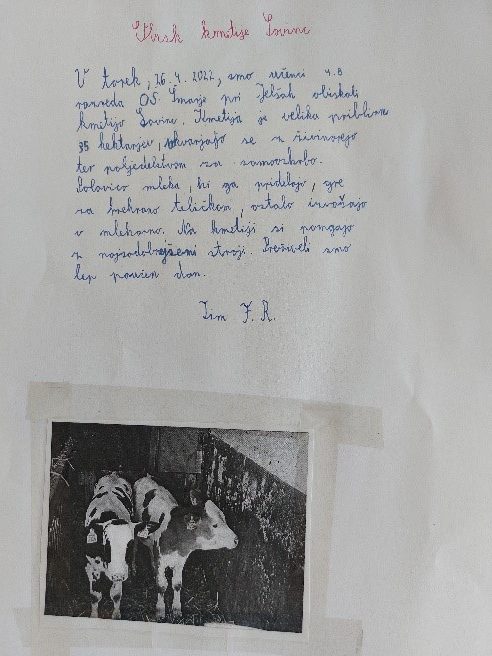 Obisk kmetije Lovinc
V torek, 26.4.2022, smo učenci 4.B
razreda OŠ Šmarje pri Jelšah obiskali
kmetijo Lovinc. Kmetija je velika približno
35 hektarjev, ukvarjajo se z živinorejo
ter poljedelstvom za samooskrbo.
Polovico mleka, ki ga pridelajo, gre
za prehrano teličkom, ostalo izvažajo
v mlekarno. Na kmetiji si pomagajo
z najsodobnejšimi stroji. Preživeli smo
lep poučen dan.
Tim J. R.